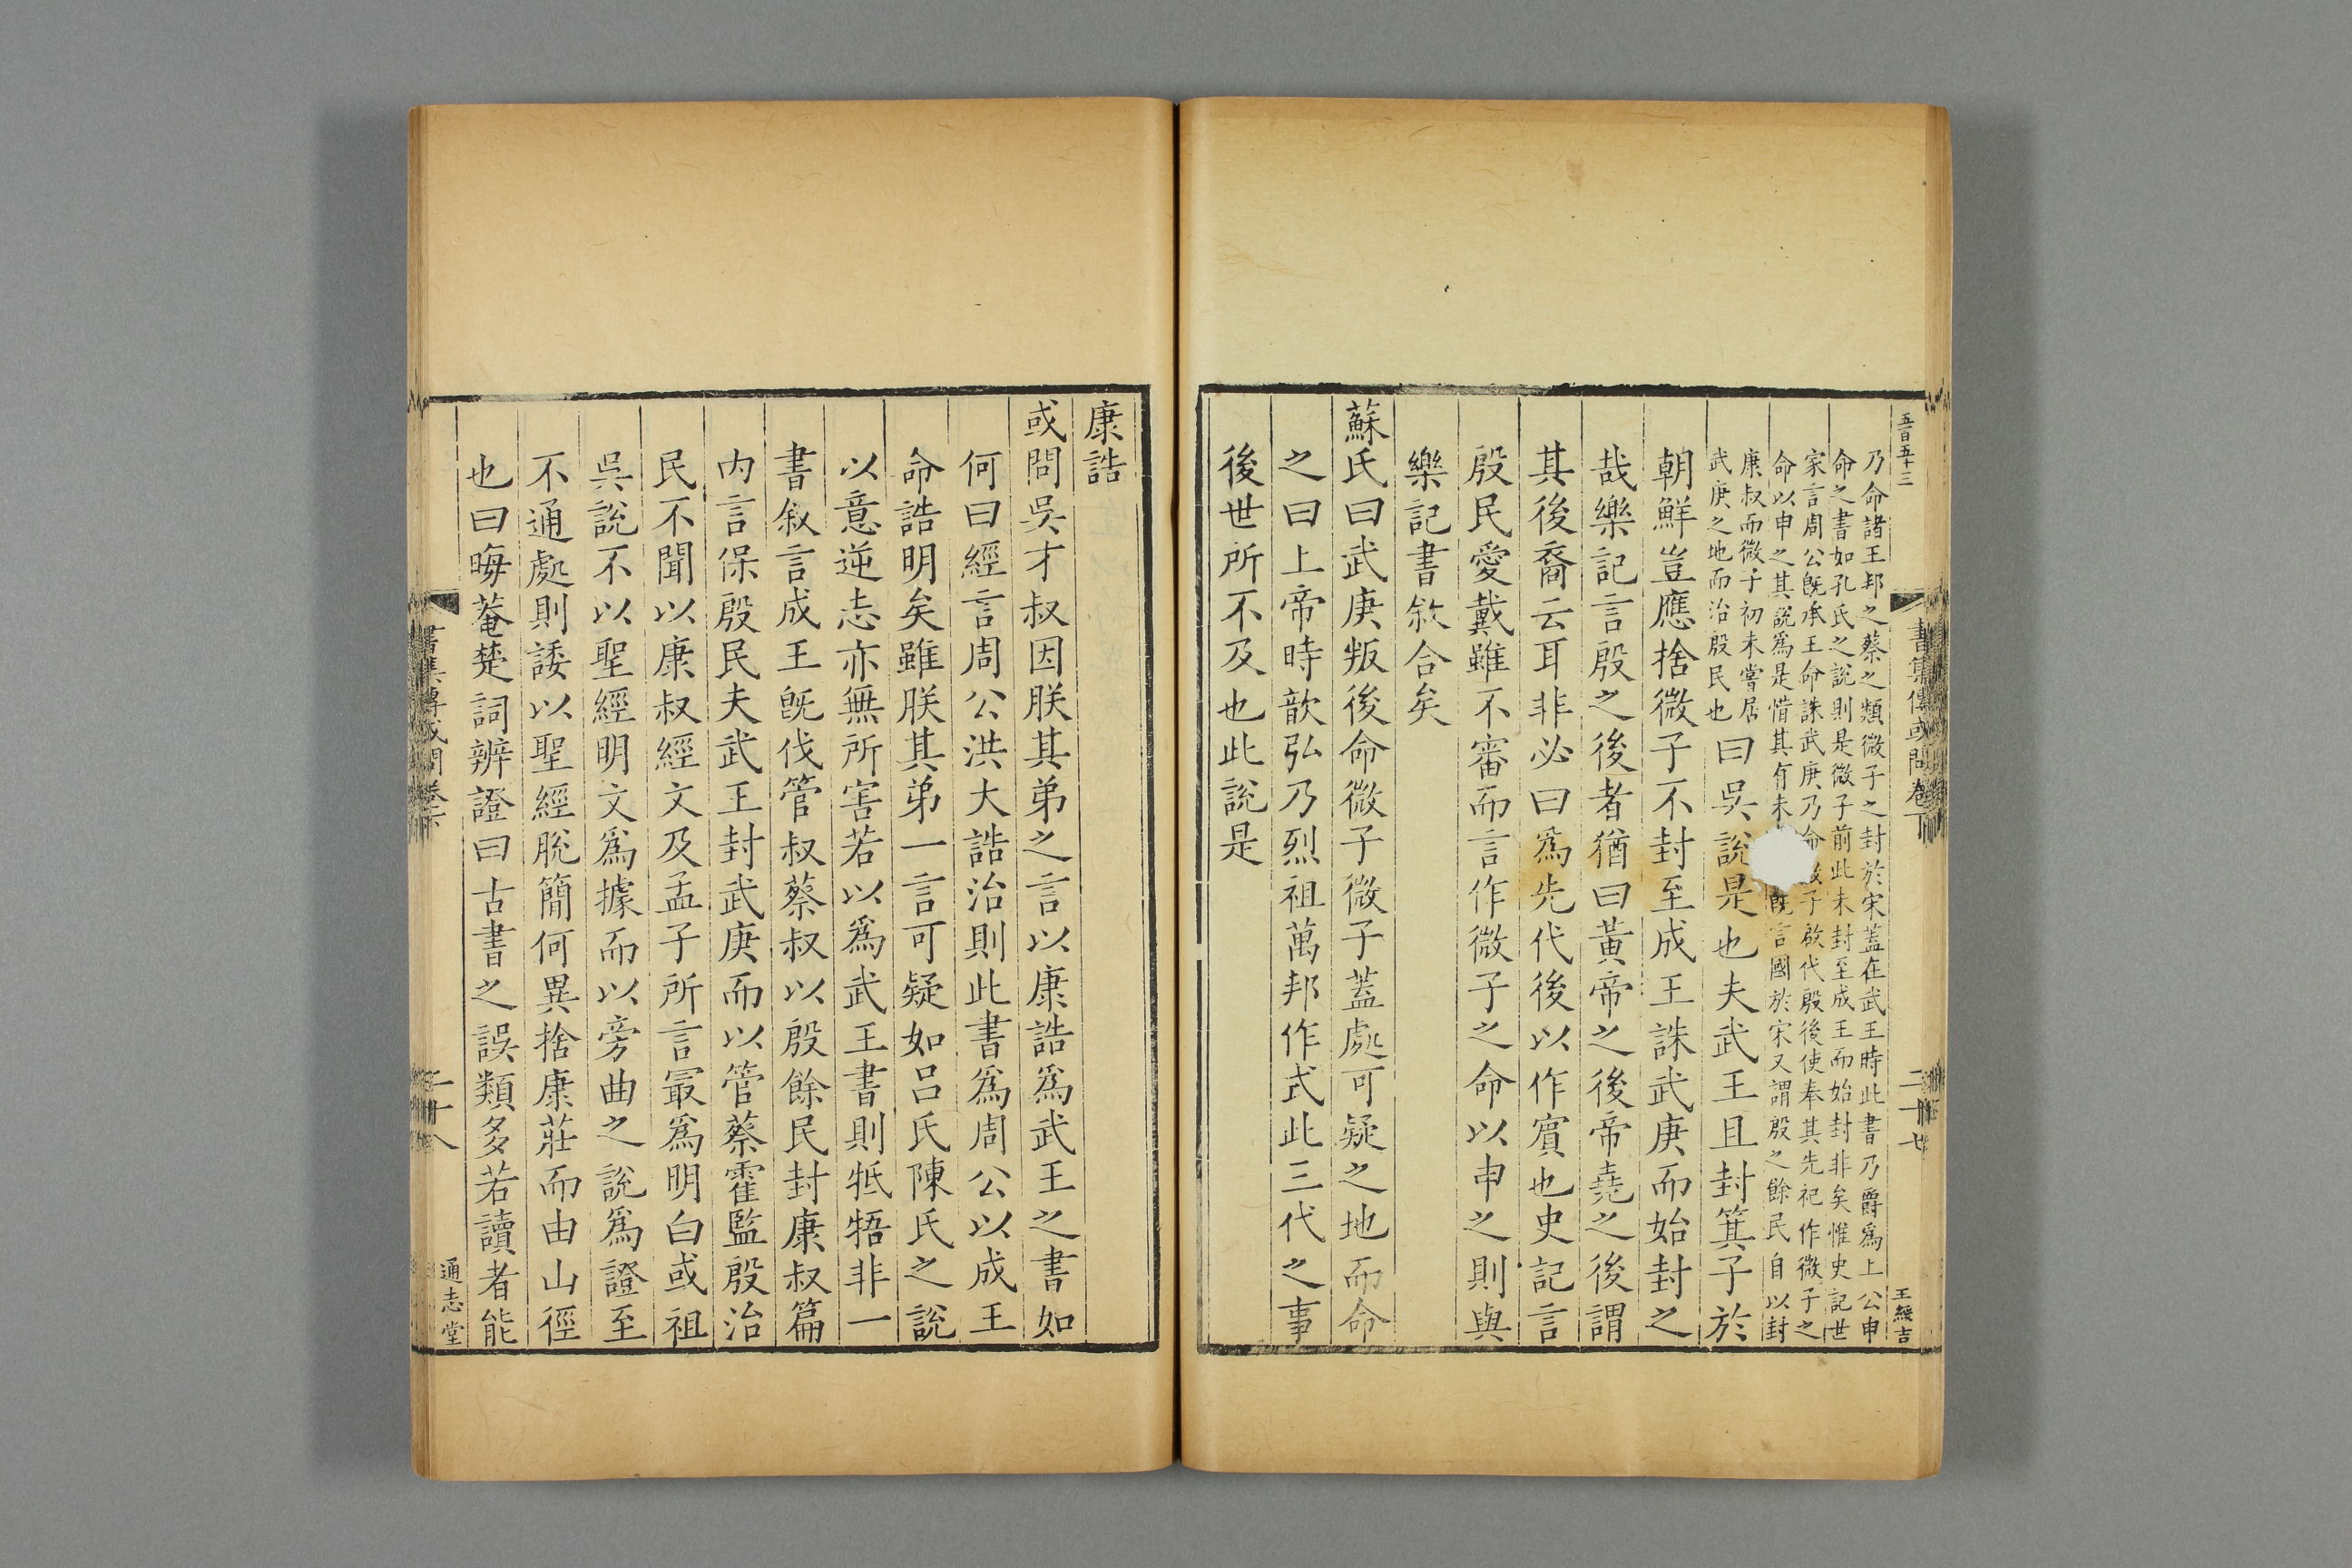 五百五十三
書集傳或問卷下
二十七
王綏吉
乃命諸王邦之蔡之類微子之封於宋蓋在武王時此書乃爵爲上公申
命之書如孔氏之說則是微子前此未封至成王而始封非矣惟史記世
家言周公旣承王命誅武庚乃命微子啟代殷後使奉其先祀作微子之
命以申之其說爲是惜其有未 旣言國於宋又謂殷之餘民自以封
康叔而微子初未嘗居
武庚之地而治殷民也曰吳說是也夫武王且封箕子於
朝鮮豈應捨微子不封至成王誅武庚而始封之
哉樂記言殷之後者猶曰黃帝之後帝堯之後謂
其後裔云耳非必曰爲先代後以作賓也史記言
殷民愛戴雖不審而言作微子之命以申之則與
樂記書敘合矣
蘇氏曰武庚叛後命微子微子蓋處可疑之地而命
之曰上帝時歆弘乃烈祖萬邦作式此三代之事
後世所不及也此說是
康誥
或問吳才叔因朕其弟之言以康誥爲武王之書如
何曰經言周公洪大誥治則此書爲周公以成王
命誥明矣雖朕其弟一言可疑如呂氏陳氏之說
以意逆志亦無所害若以爲武王書則牴牾非一
書敘言成王旣伐管叔蔡叔以殷餘民封康叔篇
內言保殷民夫武王封武庚而以管蔡霍監殷治
民不聞以康叔經文及孟子所言最爲明白或祖
吳說不以聖經明文爲據而以旁曲之說爲證至
不通處則諉以聖經脫簡何異捨康莊而由山徑
也曰晦菴楚詞辨證曰古書之誤類多若讀者能
書集傳或問卷下
二十八
通志堂